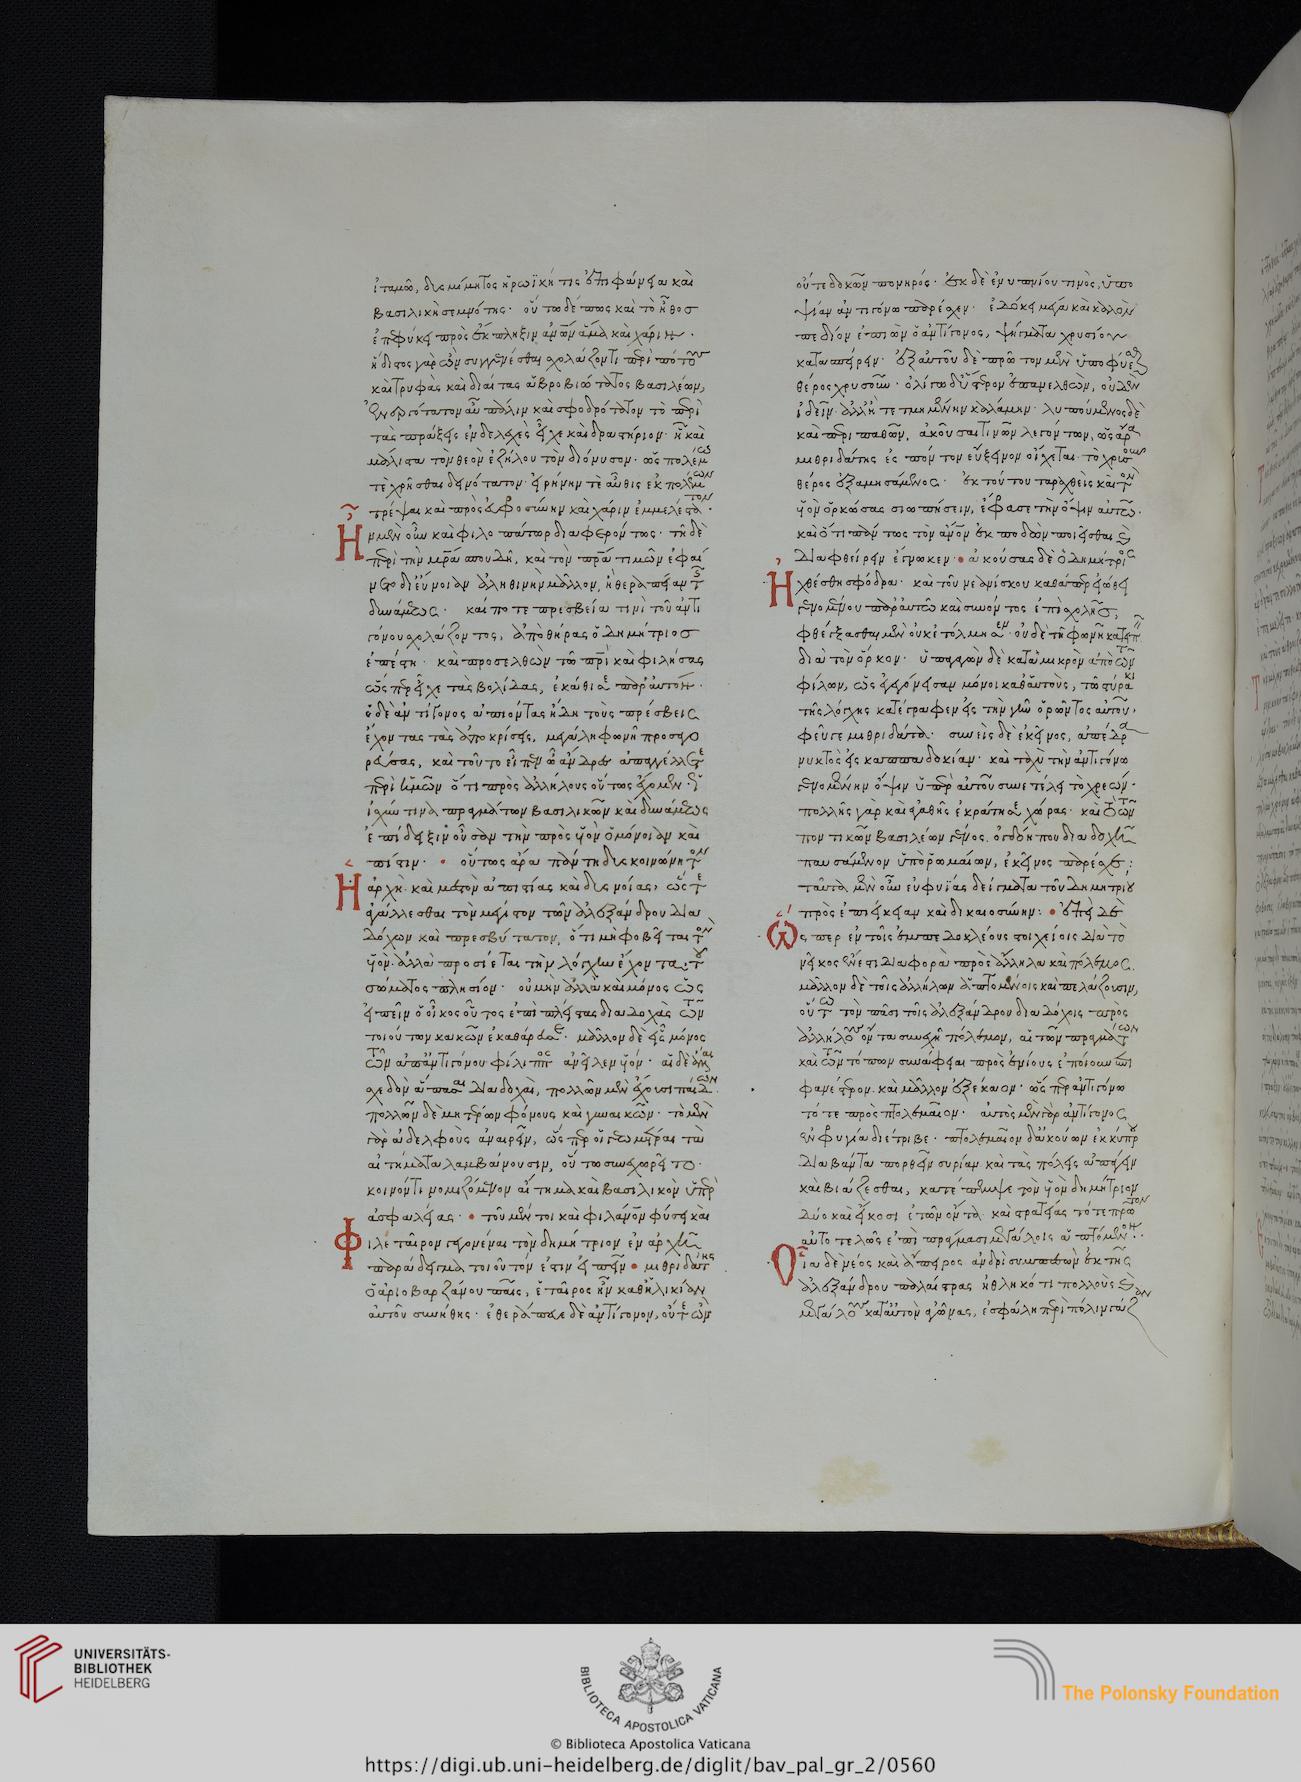 ἰταμῶ, δυσμίμητος ἡρωϊκή τις ἐπιφάνεια καὶ
βασιλικὴ σεμνότης· οὕτω δέ πως καὶ τὸ ἦθος
ἐπεφύκει πρὸς ἔκπληξιν ἀνθρώπων ἅμα καὶ χάριν·
ἥδιστος γὰρ ὢν συγγενέσθαι σχολάζων τε περὶ πότους
καὶ τρυφὰς καὶ διαίτας ἁβροβιώτατος βασιλέων,
ἐνεργότατον αὖ πάλιν καὶ σφοδρότατον τὸ περὶ
τὰς πράξεις ἐνδελεχὲς εἶχε καὶ δραστήριον· ἧ καὶ
μάλιστα τὸν θεὸν ἐζήλου τὸν διόνυσον· ὡς πολέμω
τε χρῆσθαι δεινότατον· εἰρήνην τε αὖθις ἐκ πολέμων
τρέψαι καὶ πρὸς εὐφροσύνην καὶ χάριν ἐμμελέστατον·
Ἦν μὲν οὖν καὶ φιλοπάτωρ διαφερόντως· τῆ δὲ
περὶ τὴν μητέρα σπουδῆ, καὶ τὸν πατέρα τιμῶν ἐφαί
νετο δι' εὔνοιαν ἀληθινὴν μᾶλλον, ἢ θεραπείαν τῆς
δυνάμεως· καί ποτε πρεσβεία τινὶ τοῦ ἀντι
γόνου σχολάζοντος, ἀπὸ θήρας ὁ δημήτριος
ἐπέστη· καὶ προσελθὼν τῶ πατρὶ καὶ φιλήσας
ὥσπερ εἶχε τὰς βολίδας, ἐκάθισε παρ' αὐτόν·
ὁ δὲ ἀντίγονος ἀπιόντας ἤδη τοὺς πρέσβεις
ἔχοντας τὰς ἀποκρίσεις, μεγάλη φωνῆ προσαγο
ρεύσας, καὶ τοῦτο εἶπεν ὦ ἄνδρες ἀπαγγέλλετε
περὶ ἡμῶν ὅτι πρὸς ἀλλήλους οὕτως ἔχομεν· ὡς
ἰσχύν τινα πραγμάτων βασιλικῶν καὶ δυνάμεως
ἐπίδειξιν οὖσαν τὴν πρὸς υἱὸν ὁμόνοιαν καὶ
πίστιν· οὕτως ἄρα πάντη δυσκοινώνητον
Ἡ ἀρχὴ· καὶ μεστὸν ἀπιστίας καὶ δυσνοίας, ὥστε
ἀγάλλεσθαι τὸν μέγιστον τῶν ἀλεξάνδρου δια
δόχων καὶ πρεσβύτατον, ὅτι μὴ φοβεῖται τὸν
υἱὸν· ἀλλὰ προσίεται τὴν λόγχην ἔχοντα τοῦ
σώματος πλησίον· οὐ μὴν ἀλλὰ καὶ μόνος ὡς
εἰπεῖν ὁ οἶκος οὗτος ἐπὶ πλείστας διαδοχὰς τῶν
τοιούτων κακῶν ἐκαθάρευσε· μᾶλλον δὲ εἷς μόνος
τῶν ἀπ' ἀντιγόνου φίλιππος ἀνεῖλεν υἱόν· αἱ δὲ ἄλλαι
σχεδὸν ἅπασαι διαδοχαὶ, πολλῶν μὲν ἔχουσι παίδων
πολλῶν δὲ μητέρων φόνους καὶ γυναικῶν· τὸ μὲν
γὰρ ἀδελφοὺς ἀναιρεῖν, ὥσπερ οἱ γεωμέτραι τὰ
αἰτήματα λαμβάνουσιν, οὕτω συνεχωρεῖτο·
κοινόν τι νομιζόμενον αἴτημα καὶ βασιλικὸν ὑπὲρ
ἀσφαλείας· τοῦ μέντοι καὶ φιλάνθρωπον φύσει καὶ
Φιλέταιρον γεγονέναι τὸν δημήτριον ἐν ἀρχῆ
παράδειγμα τοιοῦτον ἐστιν εἰπεῖν· μιθριδάτης
ὁ ἀριοβαρζάνου παῖς, ἑταῖρος ἦν καθ' ἡλικίαν
αὐτοῦ συνήθης· ἐθεράπευε δὲ ἀντίγονον, οὔτε ὢν
οὔτε δοκῶν πονηρός· ἐκ δὲ ἐνυπνίου τινὸς, ὑπο
ψίαν ἀντιγόνω παρέσχεν· ἐδόκει μέγα καὶ καλὸν
πεδίον ἐπιὼν ὁ ἀντίγονος, ψήγματα χρυσίου
κατασπείρειν· ἐξ αὐτοῦ δὲ πρῶτον μὲν ὑποφύεσθαι
θέρος χρυσοῦν· ὀλίγω δ' ὕστερον ἐπανελθὼν, οὐδὲν
ἰδεῖν· ἀλλ' ἢ τετμημένην καλάμην· λυπούμενος δὲ
καὶ περιπαθῶν, ἀκοῦσαί τινων λεγόντων, ὡς ἄρα
μιθριδάτης ἐς πόντον εὔξεινον οἴχεται· τὸ χρυσοῦν
θέρος ἐξαμησάμενος· ἐκ τούτου ταραχθεὶς καὶ τὸν
υἱὸν ὁρκώσας σιωπήσειν, ἔφρασε τὴν ὄψιν αὐτῶ·
καὶ ὅτι πάντως τὸν ἄνθρωπον ἐκ ποδῶν ποιεῖσθαι καὶ
διαφθείρειν ἔγνωκεν· ἀκούσας δὲ ὁ δημήτριος
Ἠχθέσθη σφόδρα· καὶ τοῦ νεανίσκου καθάπερ εἰώθει
γενομένου παρ' αὐτῶ καὶ συνόντος ἐπὶ σχολῆς,
φθέγξασθαι μὲν οὐκ ἐτόλμησεν· οὐδὲ τῆ φωνῆ κατειπεῖν
διὰ τὸν ὅρκον· ὑπαγαγὼν δὲ κατὰ μικρὸν ἀπὸ τῶν
φίλων, ὡς ἐγεγόνεισαν μόνοι καθ' αὑτοὺς, τῶ στύρακι
τῆς λόγχης κατέγραφεν εἰς τὴν γῆν ὁρῶντος αὐτοῦ,
φεῦγε μιθριδάτα· συνεὶς δὲ ἐκεῖνος, ἀπέδρα
νυκτὸς εἰς καππαδοκίαν· καὶ ταχὺ τὴν ἀντιγόνω
γενομένην ὄψιν ὕπαρ αὐτοῦ συνετέλει τὸ χρεών·
πολλῆς γὰρ καὶ ἀγαθῆς ἐκράτησε χώρας· καὶ τὸ τῶν
ποντικῶν βασιλέων γένος· ὀγδόη που διαδοχῆ
παυσάμενον ὑπὸ ῥωμαίων, ἐκεῖνος παρέσχε·
ταῦτα μὲν οὖν εὐφυΐας δείγματα τοῦ δημητρίου
πρὸς ἐπιείκειαν καὶ δικαιοσύνην· ἐπεὶ δὲ
Ὥσπερ ἐν τοῖς ἐμπεδοκλέους στοιχείοις διὰ τὸ
νεῖκος ἔνεστι διαφορὰ πρὸς ἄλληλα καὶ πόλεμος·
μᾶλλον δὲ τοῖς ἀλλήλων ἁπτομένοις καὶ πελάζουσιν,
οὕτω τὸν πᾶσι τοῖς ἀλεξάνδρου διαδόχοις πρὸς
ἀλλήλους ὄντα συνεχῆ πόλεμον, αἱ τῶν πραγμάτων
καὶ τῶν τόπων συνάφειαι πρὸς ἐνίους ἐποίουν ἐπι
φανέστερον· καὶ μᾶλλον ἐξέκαιον· ὥσπερ ἀντιγόνω
τότε πρὸς πτολεμαῖον· αὐτὸς μὲν γὰρ ἀντίγονος
ἐν φρυγία διέτριβε· πτολεμαῖον δ' ἀκούων ἐκ κύπρου
διαβάντα πορθεῖν συρίαν καὶ τὰς πόλεις ἀπάγειν
καὶ βιάζεσθαι, κατέπεμψε τὸν υἱὸν δημήτριον
δύο καὶ εἴκοσι ἐτῶν ὄντα· καὶ στρατείας τότε πρῶτον
αὐτοτελῶς ἐπὶ πράγμασι μεγάλοις ἁπτόμενον·
Οἷα δὲ νέος καὶ ἄπειρος ἀνδρὶ συμπεσὼν ἐκ τῆς
ἀλεξάνδρου παλαίστρας ἠθληκότι πολλοὺς καὶ
μεγάλους κατ' αὐτὸν ἀγῶνας, ἐσφάλη περὶ πόλιν γάζαν
UNIVERSITÄTS-
BIBLIOTHEK
HEIDELBERG
BIBLIOTECA APOSTOLICA VATICANA
The Polonsky Foundation
© Biblioteca Apostolica Vaticana
https://digi.ub.uni-heidelberg.de/diglit/bav_pal_gr_2/0560